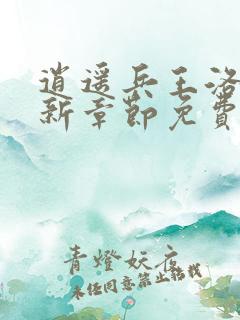 逍遥兵王洛
新章節免費
青燈妖夜
未経同意禁止転載